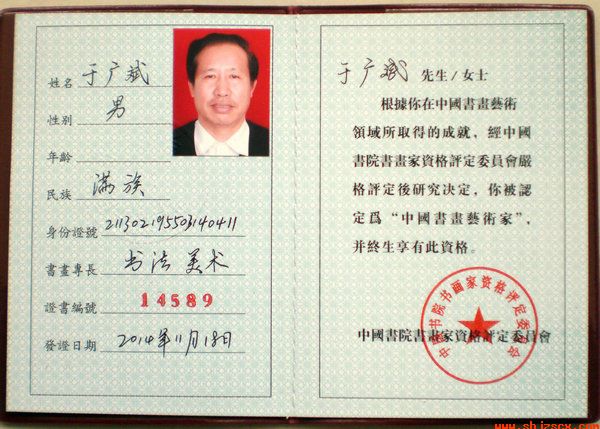 姓名 于广斌
性别 男
年齡
民族 满族
身份證號 211302195503140411
書畫專長 书法 美术
證書編號 14589
發證日期 2014年11月18日
于广斌 先生/女士
根據你在中國書畫藝術
領域所取得的成就，經中國
書院書畫家資格評定委員會嚴
格評定後研究決定，你被認
定爲“中國書畫藝術家”，
并終生享有此資格。
中國書院書畫家資格評定委員會
中國书院书画家资格评定委员会
www.shjzscx.com